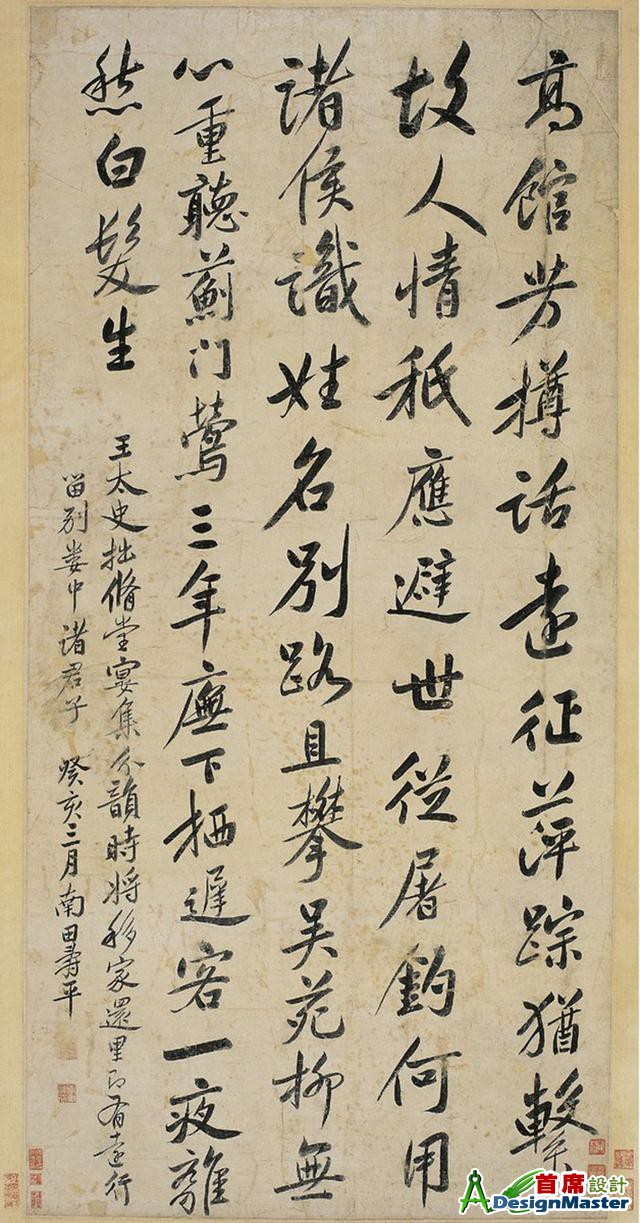 高館芳樽話遠征萍踪猶繫
故人情秖應避世從屠釣何用
諸侯識姓名別路且攀吴苑柳無
心重聽薊门鶯三年廡下栖遲客一夜離
愁白髮生
王太史拙脩堂宴集分韻時将移家還里即有遠行
留别娄中諸君子 癸亥三月南田壽平
首席設計
ADesignMaster